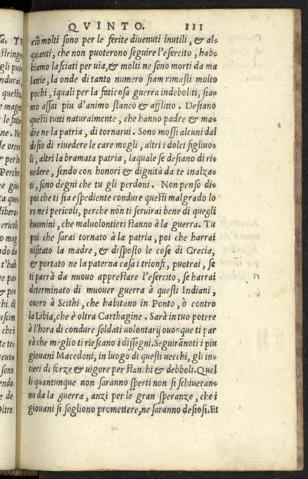 QVINTO. 111
ciò molti sono per le ferite diuenuti inutili, & al-
quanti, che non puoterono seguire l'esercito, hab-
biamo lasciati per uia, & molti ne sono morti da ma
lattie, la onde di tanto numero siam rimasti molto
pochi, i quali per la faticosa guerra indeboliti, sia-
mo assai piu d'animo stanco & afflitto. Desiano
questi tutti naturalmente, che hanno padre & ma-
dre ne la patria, di tornarsi. Sono mossi alcuni dal
desio di riuedere le care mogli, altri i dolci figliuo-
li, altri la bramata patria, laquale se desiano di ri-
uedere, sendo con honori & dignità da te inalza-
ti, sono degni che tu gli perdoni. Non penso di-
poi che ti sia espediente condure questi malgrado lo
ro ne i pericoli, perche non ti seruirai bene di quegli
huomini, che maluolontieri stanno à la guerra. Tu
poi che sarai tornato à la patria, poi che harrai
uisitato la madre, & disposto le cose di Grecia,
& portato ne la paterna casa i trionfi, puotrai, se
ti parrà da nuouo apprestare l'esercito, se harrai
determinato di muouer guerra à questi Indiani,
ouero à Scithi, che habitano in Ponto, ò contro
la Libia, che è oltra Carthagine. Sarà in tuo potere
à l'hora di condure soldati uolontarij ouoque ti par
rà che meglio ti riescano i disegni. Seguiranoti i piu
giouani Macedoni, in luogo di questi uecchi, gli in-
tieri di forze & uigore per stanchi & debboli. Quel
li quantunque non saranno sperti non si schiueran-
no da la guerra, anzi per le gran speranze, che i
giouani si sogliono promettere, ne saranno desiosi. Et